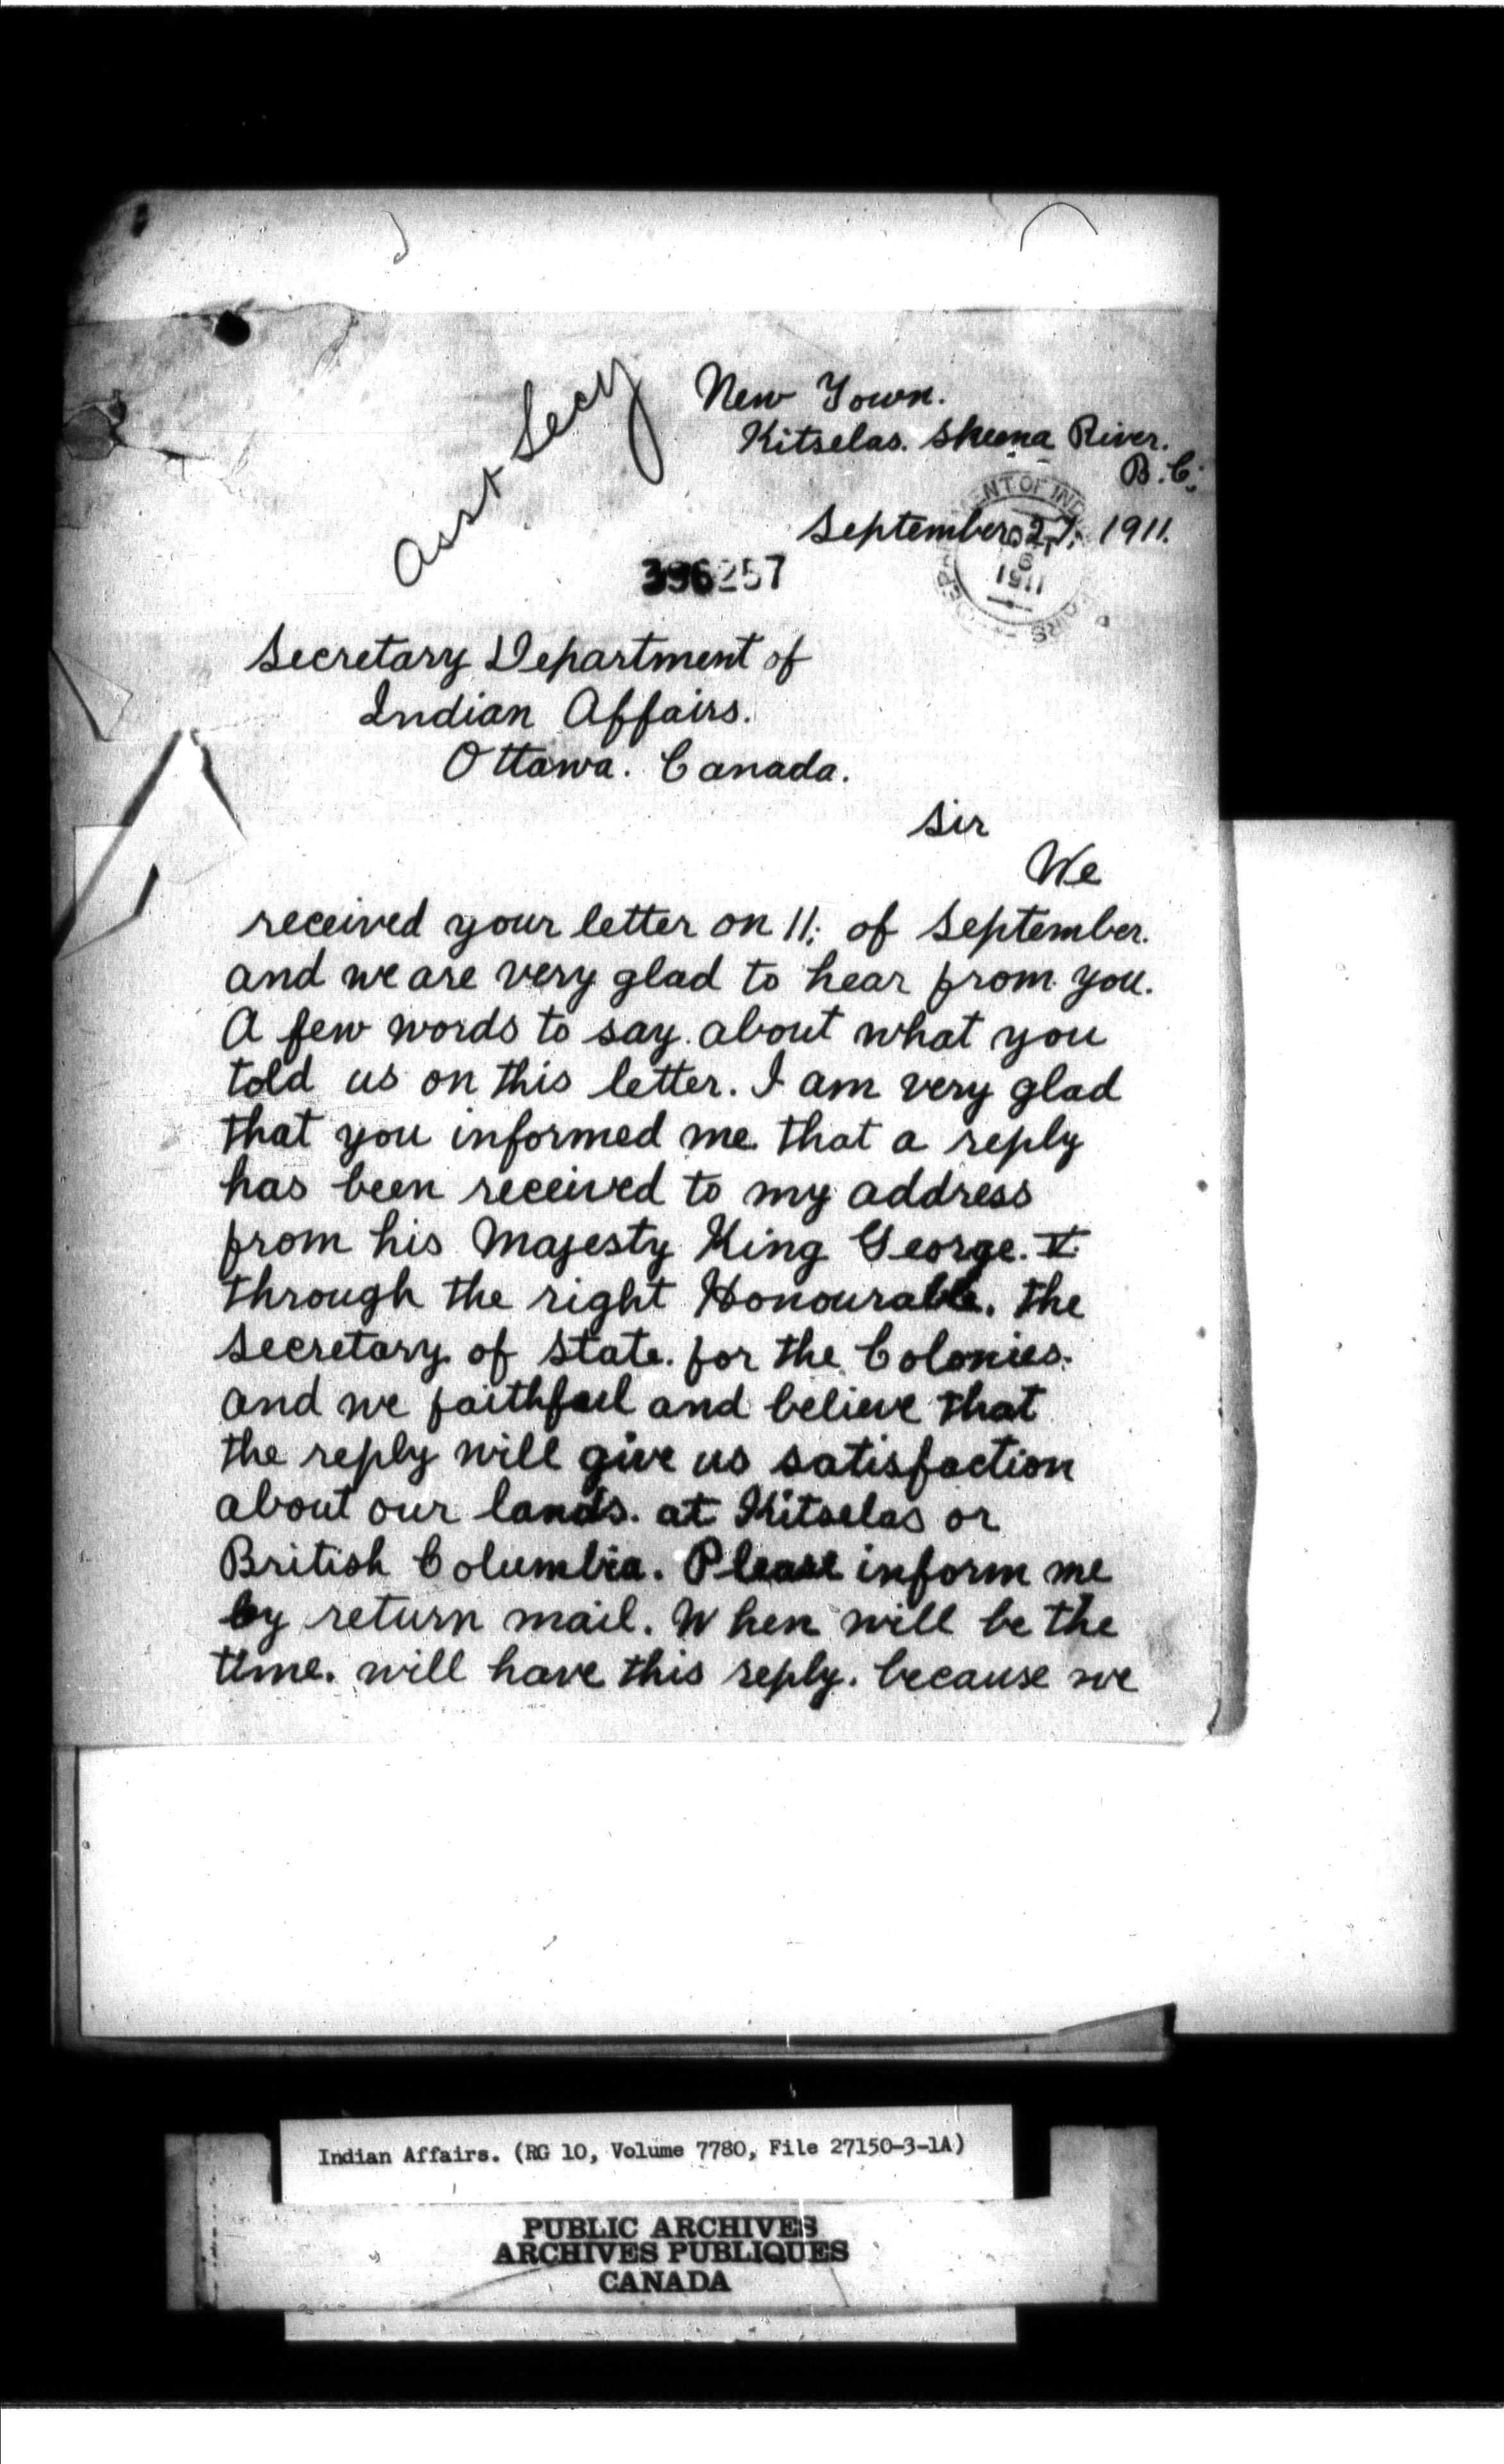 Asst Secy
New Town.
Kitselas. Skeena River.
B.C.
September 27, 1911.
396257
Secretary Department of
Indian Affairs.
Ottawa. Canada.
Sir
We
received your letter on 11; of September.
and we are very glad to hear from you.
A few words to say about what you
told us on this letter. I am very glad
that you informed me that a reply
has been received to my address
from his Majesty King George. V.
through the right Honourable. the
Secretary of State. for the Colonies.
and we faithful and believe that
the reply will give us satisfaction
about our lands. at Kitselas or
British Columbia. Please inform me
by return mail. When will be the
time. will have this reply. because we
Indian Affairs. (RG 10, Volume 7780, File 27150-3-1A)
PUBLIC ARCHIVES
ARCHIVES PUBLIQUES
CANADA